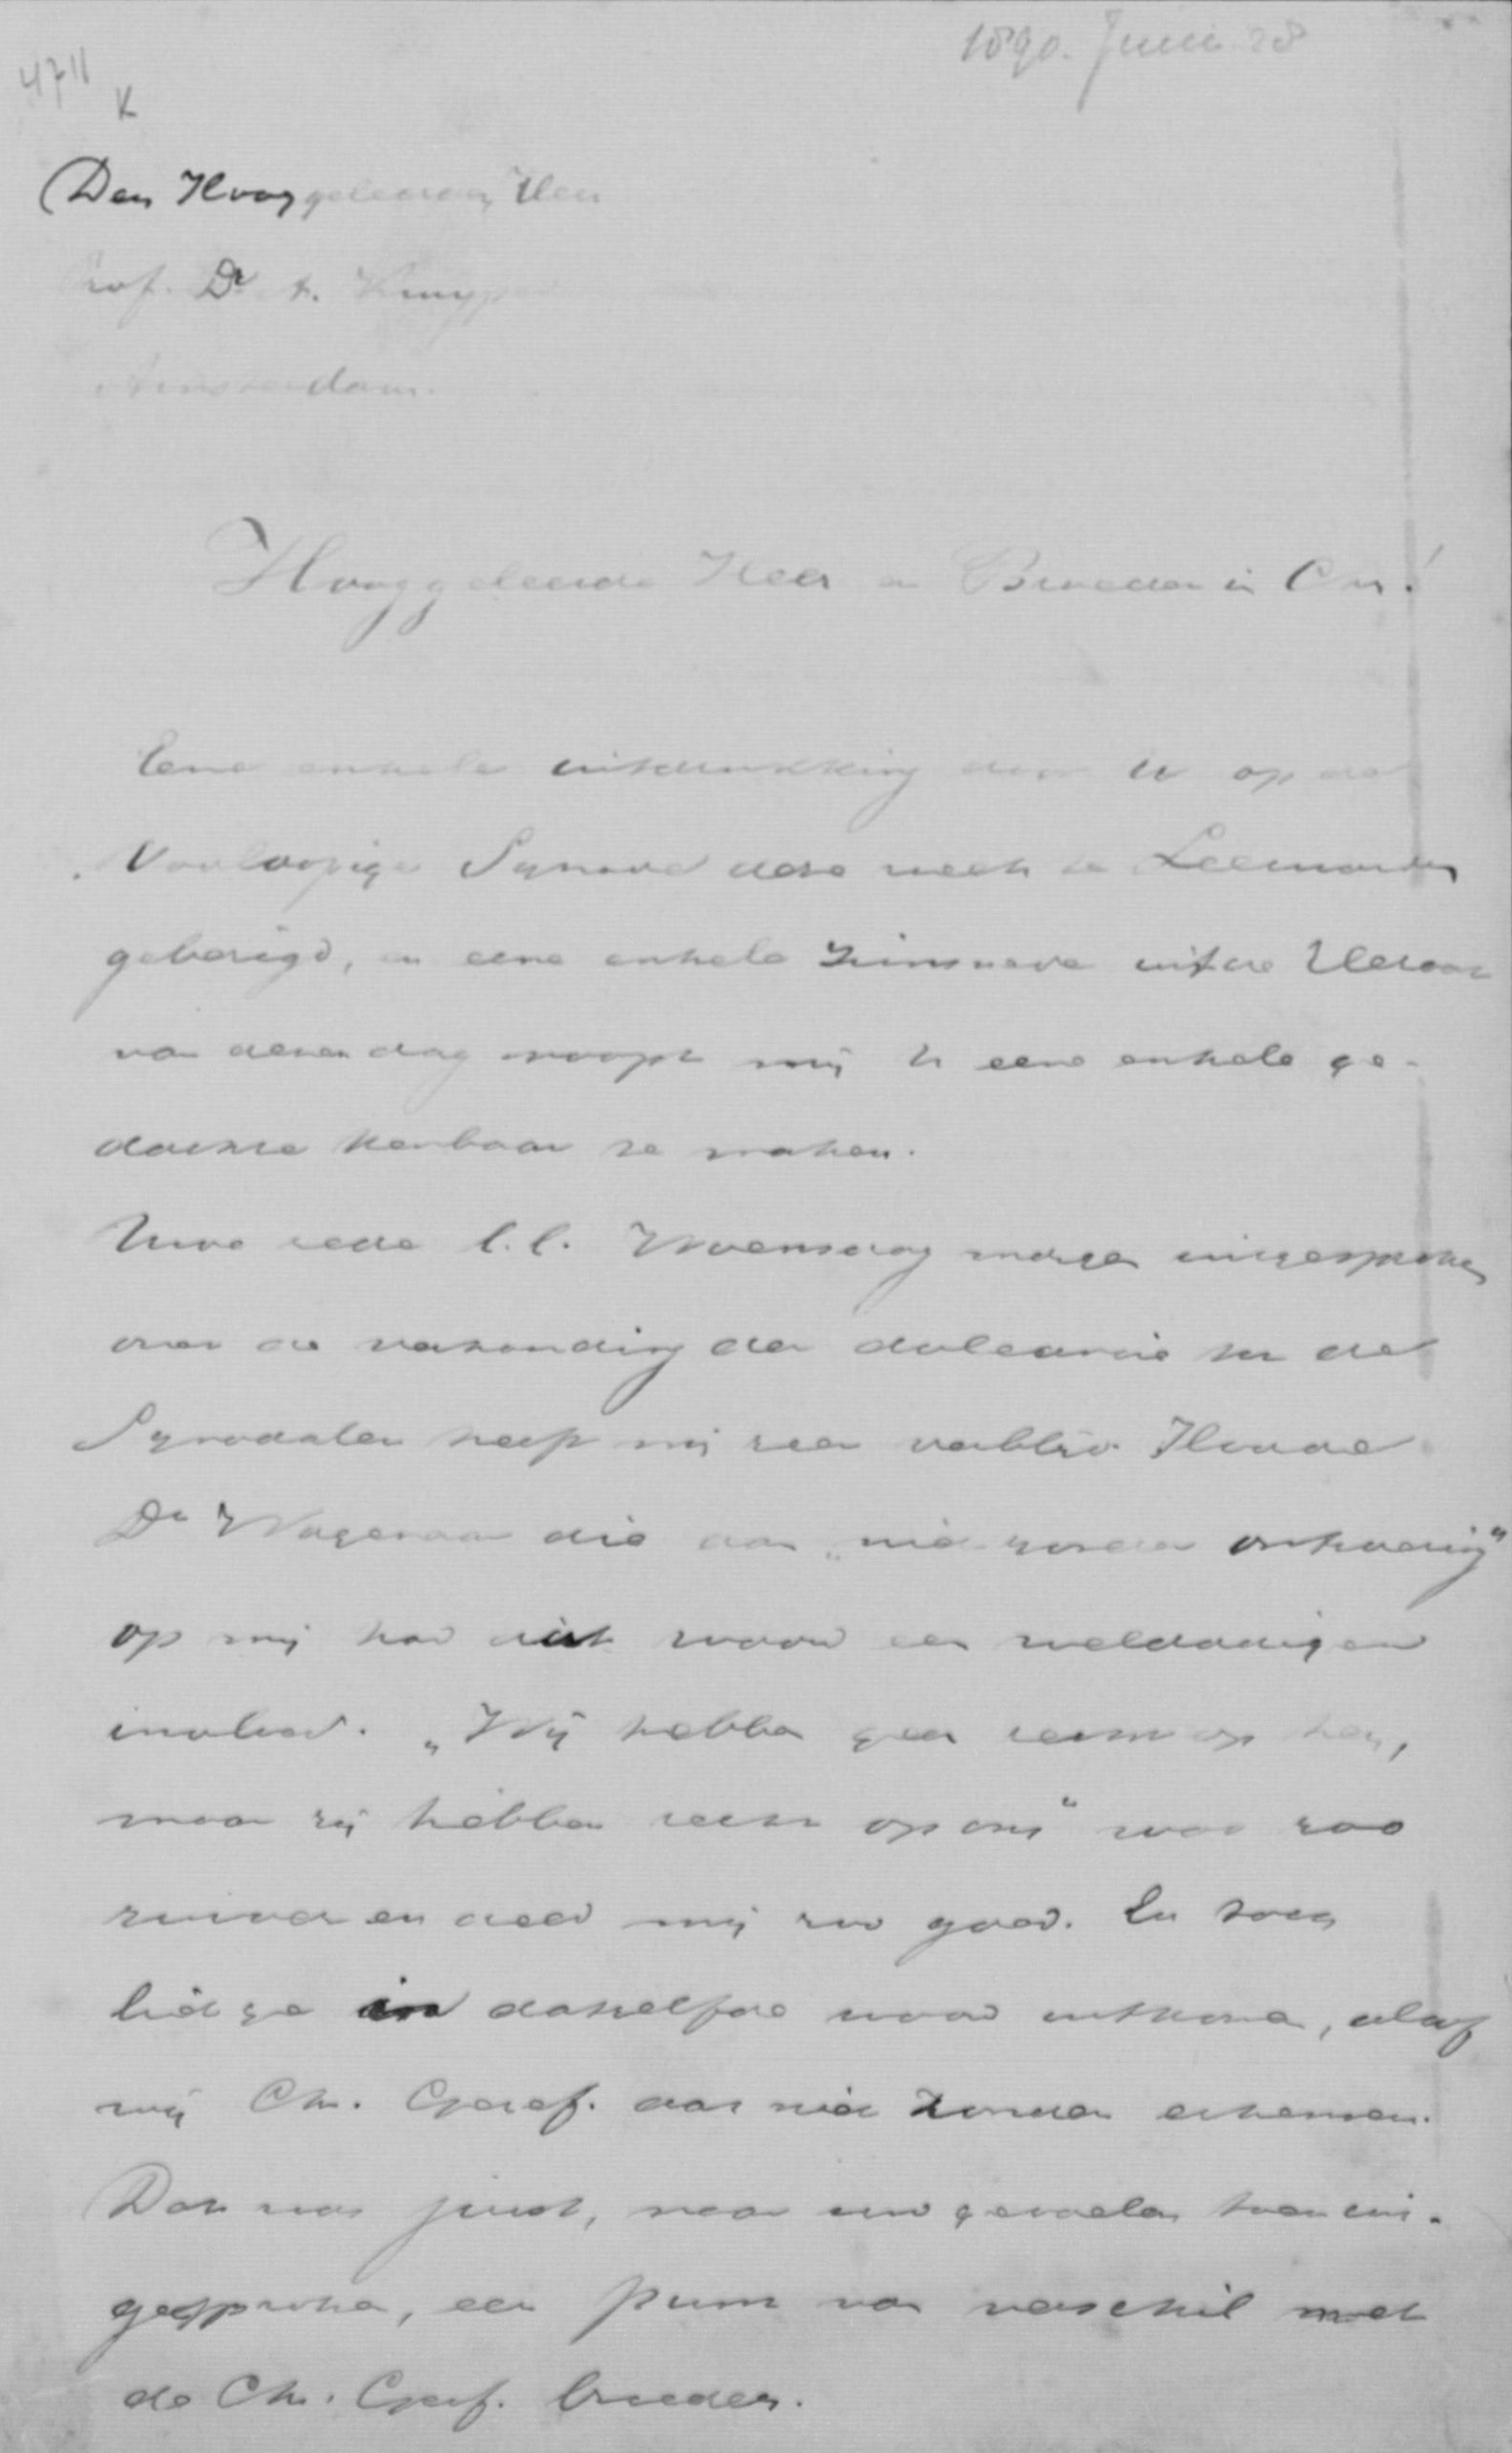 1890. Juni 28
4711
K
Den Hooggeleerden Heer
Prof. Dr A. Kuyper
Amsterdam.
Hooggeleerde Heer en Broeder in Chr.!
Eene enkele uitdrukking door U op de
Voorloopige Synode deze week te Leeuwarden
gebezigd, en eene enkele zinsnede uit de Heraut
van dezen dag noopt mij U eene enkele ge-
dachte kenbaar te maken.
Uwe rede l.l. Woensdag morgen uitgesproken
over de verhouding der doleantie tot de
Synodalen heeft mij zeer verblijd. Hoewel
Dr Wagenaar die aan „niet zonder ontroering"
op mij had uit woord een weldadigen
invloed. „Wij hebben geen recht op hen,
maar zij hebben recht op ons" was zoo
zuiver en deed mij zoo goed. En toch
liet ge in datzelfde woord uitkomen, alsof
wij Chr. Geref. dat niet zouden erkennen.
Dat was juist, naar uw gevoelen toen uit-
gesproken, een punt van verschil met
de Chr. Geref. broeders.